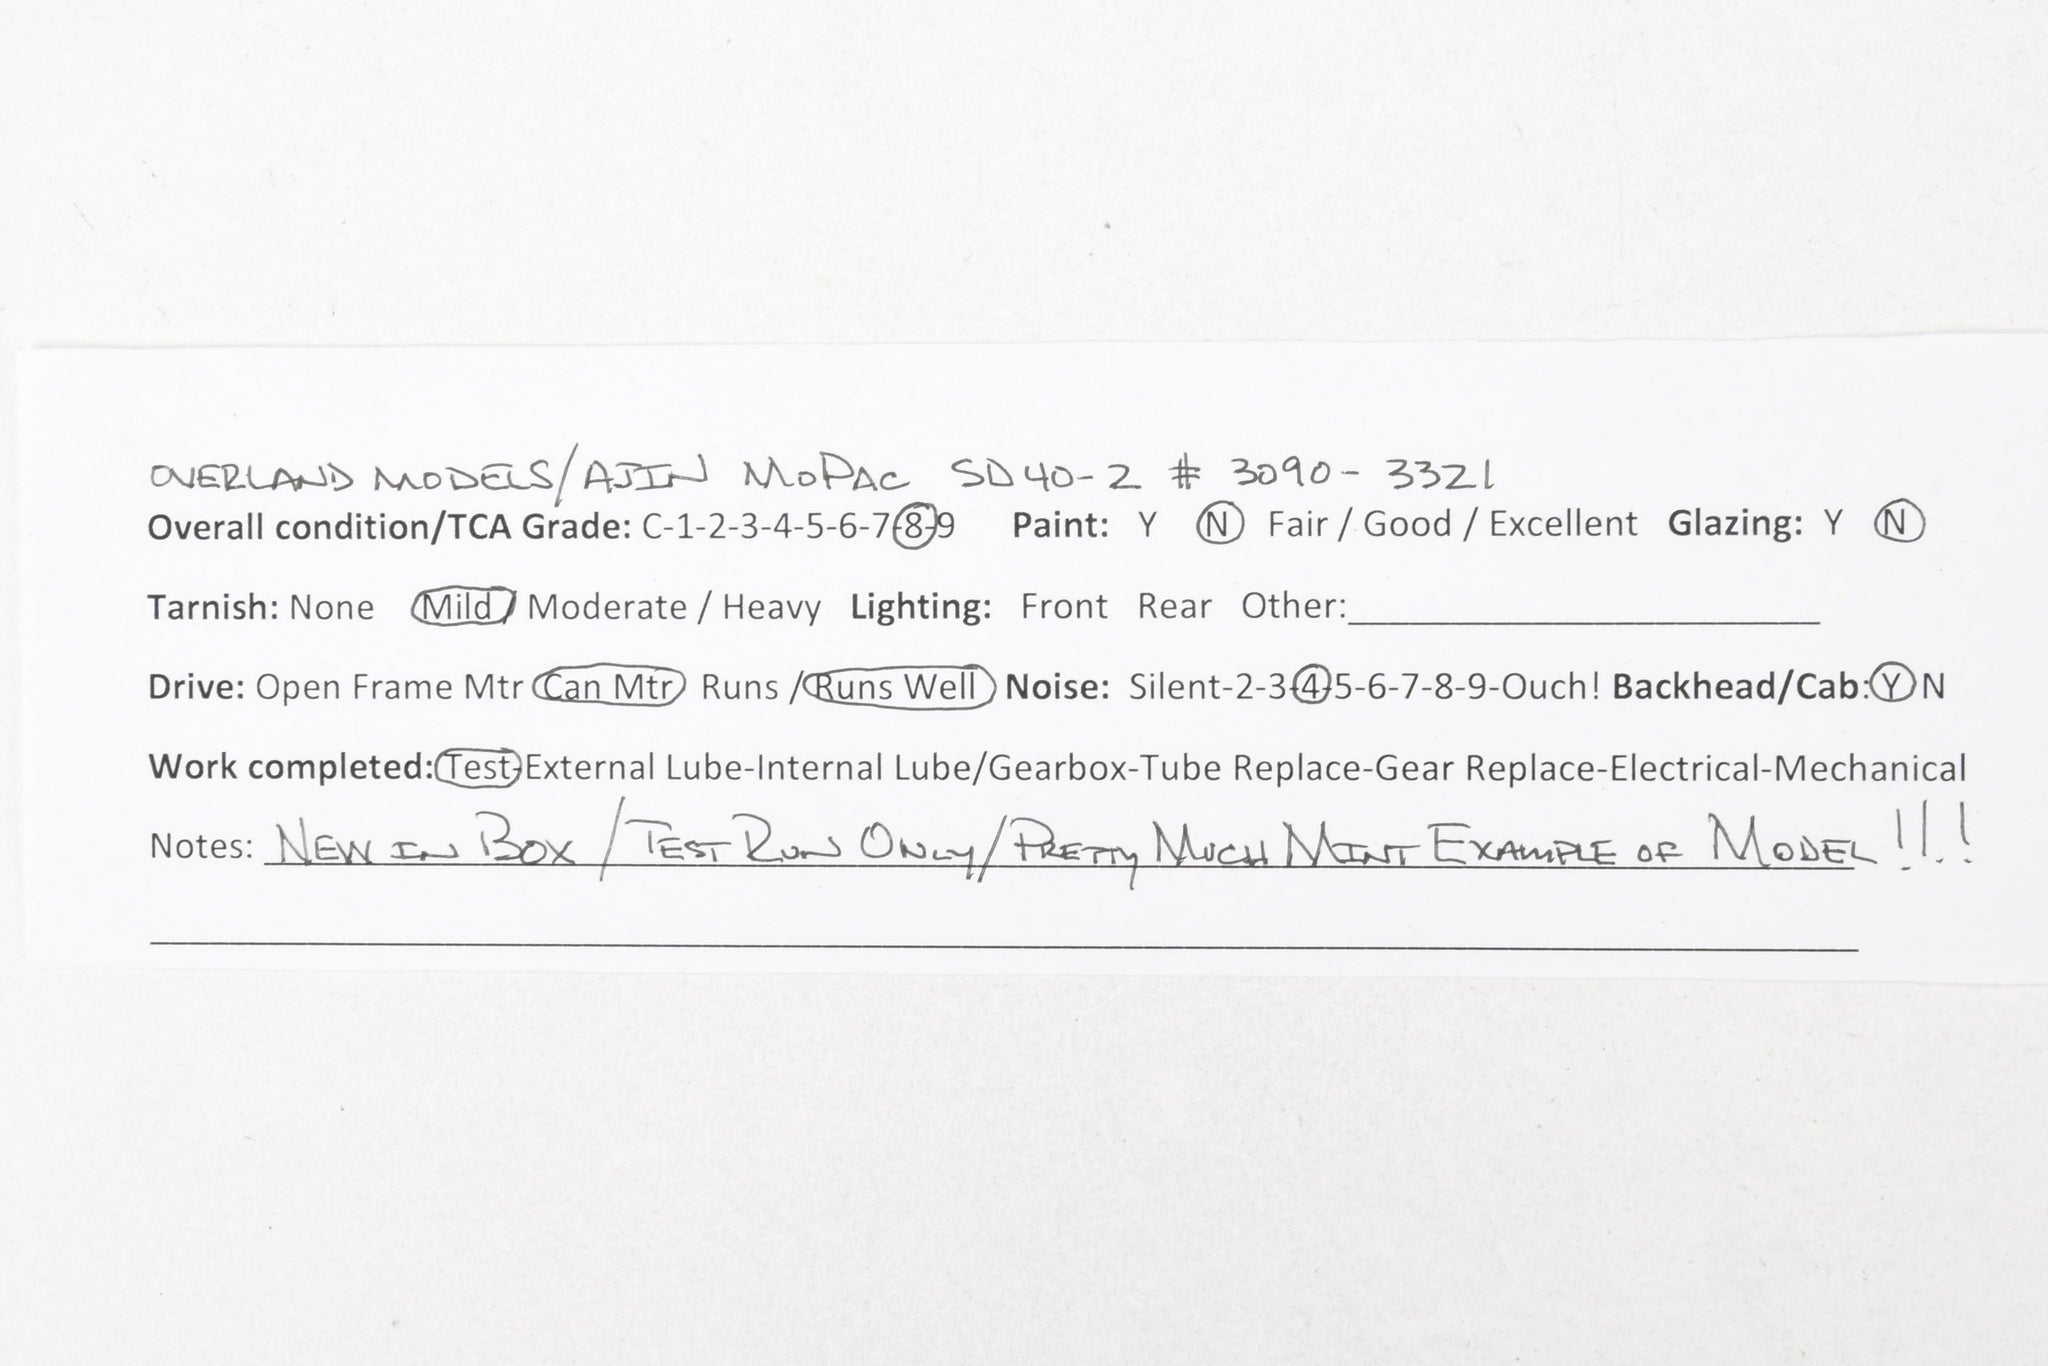 OVERLAND MODELS/AJIN MOPAC SD40-2 # 3090-3321
Overall condition/TCA Grade: C-1-2-3-4-5-6-7-8-9 Paint: Y N Fair / Good / Excellent Glazing: Y N
Tarnish: None Mild / Moderate / Heavy Lighting: Front Rear Other:
Drive: Open Frame Mtr Can Mtr Runs / Runs Well Noise: Silent-2-3-4-5-6-7-8-9-Ouch! Backhead/Cab: Y N
Work completed: Test-External Lube-Internal Lube/Gearbox-Tube Replace-Gear Replace-Electrical-Mechanical
Notes: NEW IN BOX / TEST RUN ONLY / PRETTY MUCH MINT EXAMPLE OF MODEL!!!